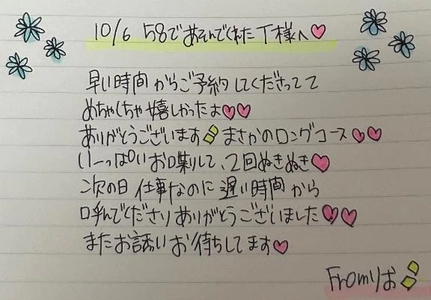 10/6 58であそんでくれた T様へ♡
早い時間からご予約してくださってて
めちゃくちゃ嬉しかったよ♡♡
ありがとうございます まさかのロングコース♡♡
いーっぱいお喋りして、2回ぬきぬき♡
次の日 仕事なのに 遅い時間から
呼んでくださりありがとうございました♡♡
またお誘いお待ちしてます♡
Fromりお